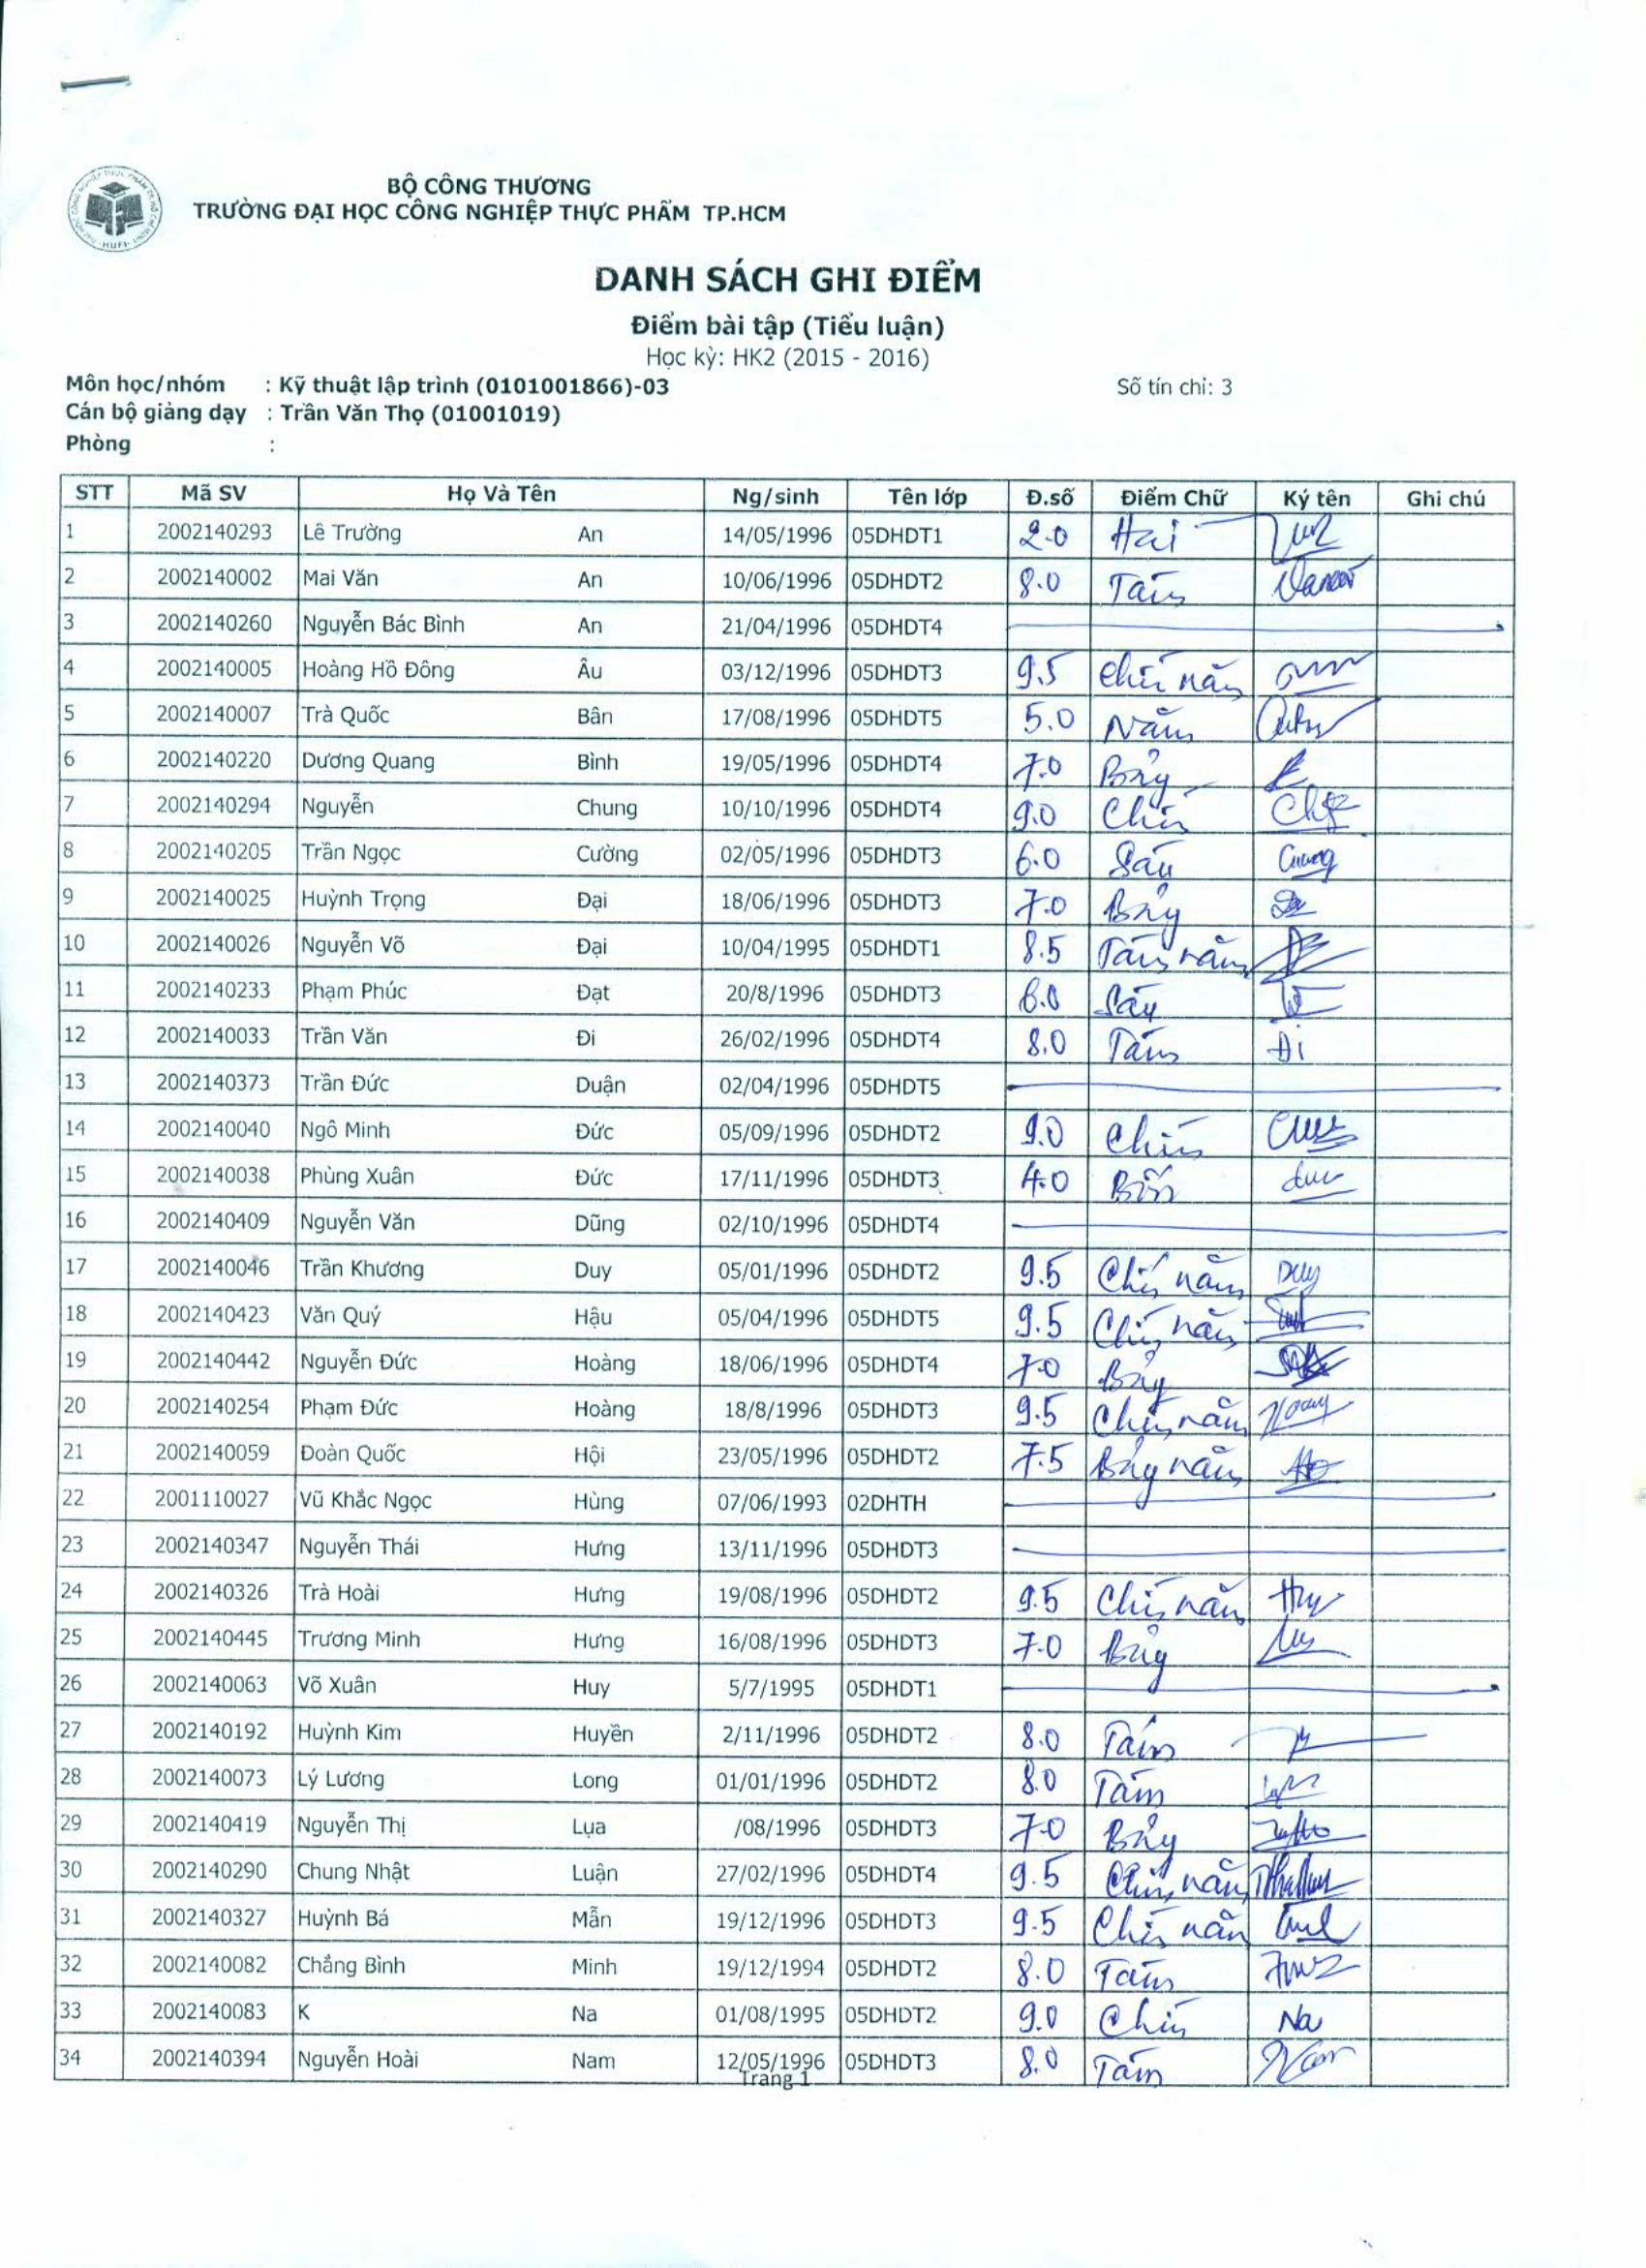 BỘ CÔNG THƯƠNG
TRƯỜNG ĐẠI HỌC CÔNG NGHIỆP THỰC PHẨM TP.HCM
HUFI
DANH SÁCH GHI ĐIỂM
Điểm bài tập (Tiểu luận)
Học kỳ: HK2 (2015 - 2016)
Môn học/nhóm : Kỹ thuật lập trình (0101001866)-03 Số tín chỉ: 3
Cán bộ giảng dạy : Trần Văn Thọ (01001019)
Phòng :
STT Mã SV Họ Và Tên Ng/sinh Tên lớp Đ.số Điểm Chữ Ký tên Ghi chú
1 2002140293 Lê Trường An 14/05/1996 05DHDT1 2.0 Hai
2 2002140002 Mai Văn An 10/06/1996 05DHDT2 8.0 Tám
3 2002140260 Nguyễn Bác Bình An 21/04/1996 05DHDT4
4 2002140005 Hoàng Hồ Đông Âu 03/12/1996 05DHDT3 9.5 Chín năm
5 2002140007 Trà Quốc Bân 17/08/1996 05DHDT5 5.0 Năm
6 2002140220 Dương Quang Bình 19/05/1996 05DHDT4 7.0 Bảy
7 2002140294 Nguyễn Chung 10/10/1996 05DHDT4 9.0 Chín
8 2002140205 Trần Ngọc Cường 02/05/1996 05DHDT3 6.0 Sáu Cuong
9 2002140025 Huỳnh Trọng Đại 18/06/1996 05DHDT3 7.0 Bảy
10 2002140026 Nguyễn Võ Đại 10/04/1995 05DHDT1 8.5 Tám năm
11 2002140233 Phạm Phúc Đạt 20/8/1996 05DHDT3 6.0 Sáu
12 2002140033 Trần Văn Đi 26/02/1996 05DHDT4 8.0 Tám Đi
13 2002140373 Trần Đức Duận 02/04/1996 05DHDT5
14 2002140040 Ngô Minh Đức 05/09/1996 05DHDT2 9.0 Chín
15 2002140038 Phùng Xuân Đức 17/11/1996 05DHDT3 4.0 Bốn đuc
16 2002140409 Nguyễn Văn Dũng 02/10/1996 05DHDT4
17 2002140046 Trần Khương Duy 05/01/1996 05DHDT2 9.5 Chín năm Duy
18 2002140423 Văn Quý Hậu 05/04/1996 05DHDT5 9.5 Chín năm
19 2002140442 Nguyễn Đức Hoàng 18/06/1996 05DHDT4 7.0 Bảy
20 2002140254 Phạm Đức Hoàng 18/8/1996 05DHDT3 9.5 Chín năm Hoang
21 2002140059 Đoàn Quốc Hội 23/05/1996 05DHDT2 7.5 Bảy năm
22 2001110027 Vũ Khắc Ngọc Hùng 07/06/1993 02DHTH
23 2002140347 Nguyễn Thái Hưng 13/11/1996 05DHDT3
24 2002140326 Trà Hoài Hưng 19/08/1996 05DHDT2 9.5 Chín năm
25 2002140445 Trương Minh Hưng 16/08/1996 05DHDT3 7.0 Bảy
26 2002140063 Võ Xuân Huy 5/7/1995 05DHDT1
27 2002140192 Huỳnh Kim Huyền 2/11/1996 05DHDT2 8.0 Tám
28 2002140073 Lý Lương Long 01/01/1996 05DHDT2 8.0 Tám
29 2002140419 Nguyễn Thị Lụa /08/1996 05DHDT3 7.0 Bảy
30 2002140290 Chung Nhật Luận 27/02/1996 05DHDT4 9.5 Chín năm
31 2002140327 Huỳnh Bá Mẫn 19/12/1996 05DHDT3 9.5 Chín năm
32 2002140082 Chắng Bình Minh 19/12/1994 05DHDT2 8.0 Tám
33 2002140083 K Na 01/08/1995 05DHDT2 9.0 Chín Na
34 2002140394 Nguyễn Hoài Nam 12/05/1996 05DHDT3 8.0 Tám Nam
Trang 1